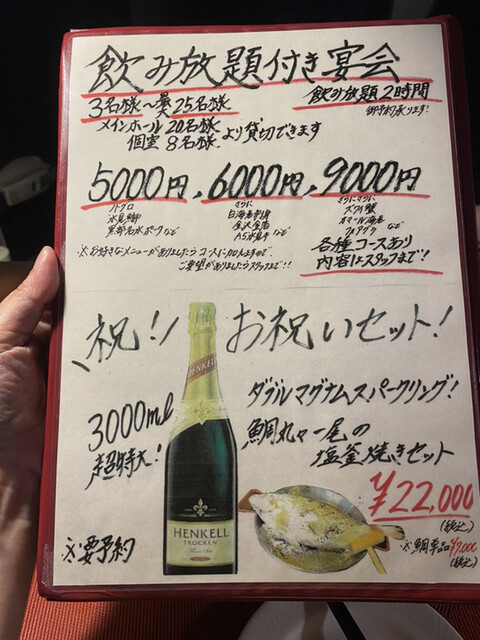 飲み放題付き宴会
3名様〜最大25名様
飲み放題2時間
御予約承ります!
メインホール 20名様
個室 8名様 より貸切できます
5000円, 6000円, 9000円
ノドグロ
氷見鰤
黒部名水ポークなど
ズワイ蟹
オマール海老
フォアグラ など
各種コースあり
内容はスタッフまで!
※お好きなメニューがありましたらコースに加えますので、
ご要望がありましたらスタッフまで!!
祝!! お祝いセット!
3000ml
超特大!
ダブルマグナムスパークリング!
鯛丸々一尾の
塩釜焼きセット
¥22,000
(税込)
※鯛単品¥7,000
(税込)
※要予約
HENKELL
HENKELL
TROCKEN